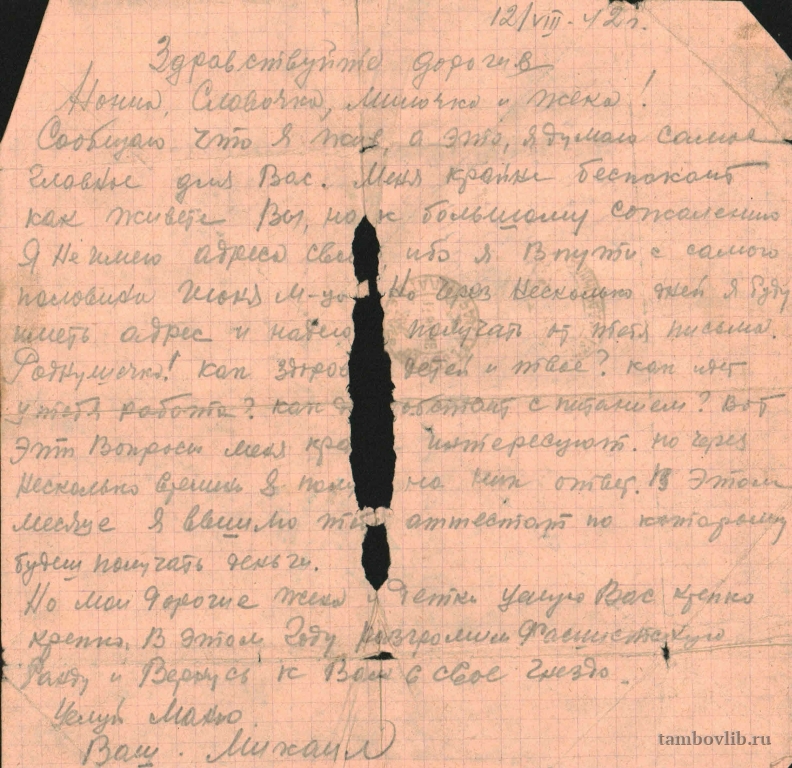 12/VIII-42г.
Здравствуйте дорогие
Нонна, Славочка, Милочка и Жека!
Сообщаю что я жив, а это, я думаю самое
главное для Вас. Меня крайне беспокоит
как живете Вы, но к большому сожалению
Я не имею адреса ибо я в пути с самого
половины июня м-ца Но через несколько дней я буду
иметь адрес и получать от тебя письма.
Роднушечка! как детей и твое? как идет
у тебя работа? как обстоит с питанием? вот
эти вопросы меня интересуют. но через
несколько времени я на них ответ. В этом
месяце я вышлю аттестат по которому
будеш получать деньги.
Но мои дорогие жена и детки целую Вас крепко
крепко. В этом году разгромим фашистскую
банду и Вернусь к Вам в свое гнездо.
Целуй Маню.
Ваш. Михаил
tambovlib.ru